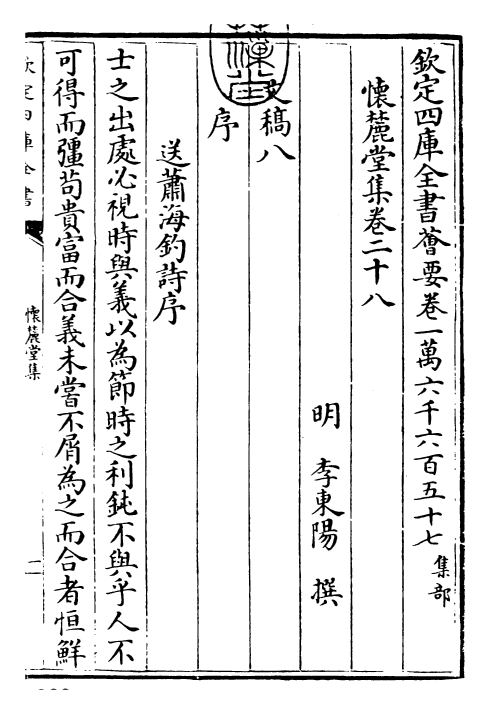 欽定四庫全書薈要卷一萬六千六百五十七
集部
懷麓堂集卷二十八
明 李東陽 撰
文稿八
序
送蕭海釣詩序
士之出處必視時與義以為節時之利鈍不與乎人不
可得而彊茍貴富而合義未嘗不屑為之而合者恒鮮
欽定四庫全書
懷麓堂集